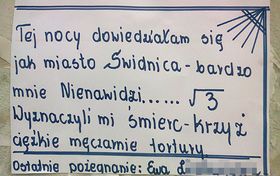 Tej nocy dowiedziałam się
jak miasto Świdnica - bardzo
mnie Nienawidzi...... √3
Wyznaczyli mi śmierć - krzyż
ciężkie męczarnie tortury
Ostatnie pożegnanie: Ewa